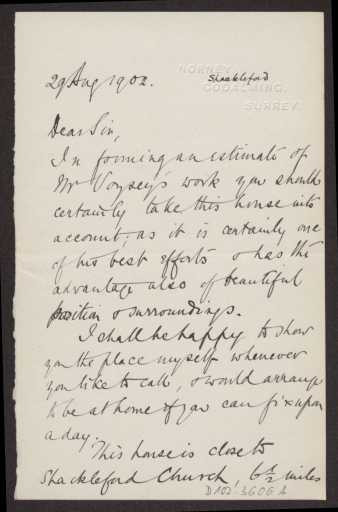 NORNEY,
29 Aug 1902. Shackleford
GODALMING,
SURREY.
Dear Sir,
In forming an estimate of
Mr Voysey's work you should
certainly take this house into
account, as it is certainly one
of his best efforts & has the
advantage also of beautiful
position & surroundings.
I shall be happy to show
you the place myself whenever
you like to call, & would arrange
to be at home if you can fix upon
a day.
This house is close to
Shackleford Church, 6½ miles